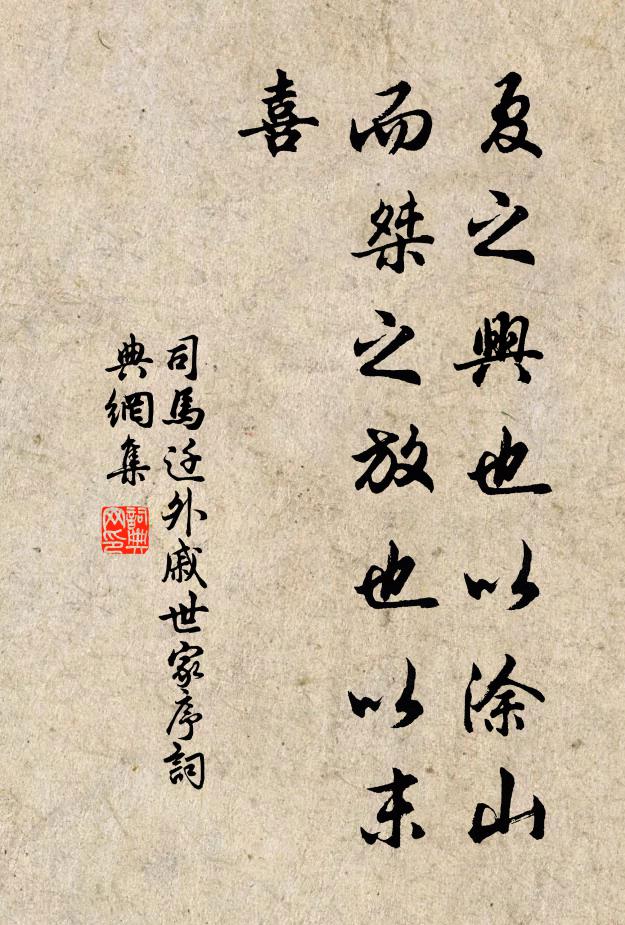 夏之興也以涂山
而桀之放也以末
喜
司馬迁外戚世家序詞
典網集
詞典
网印